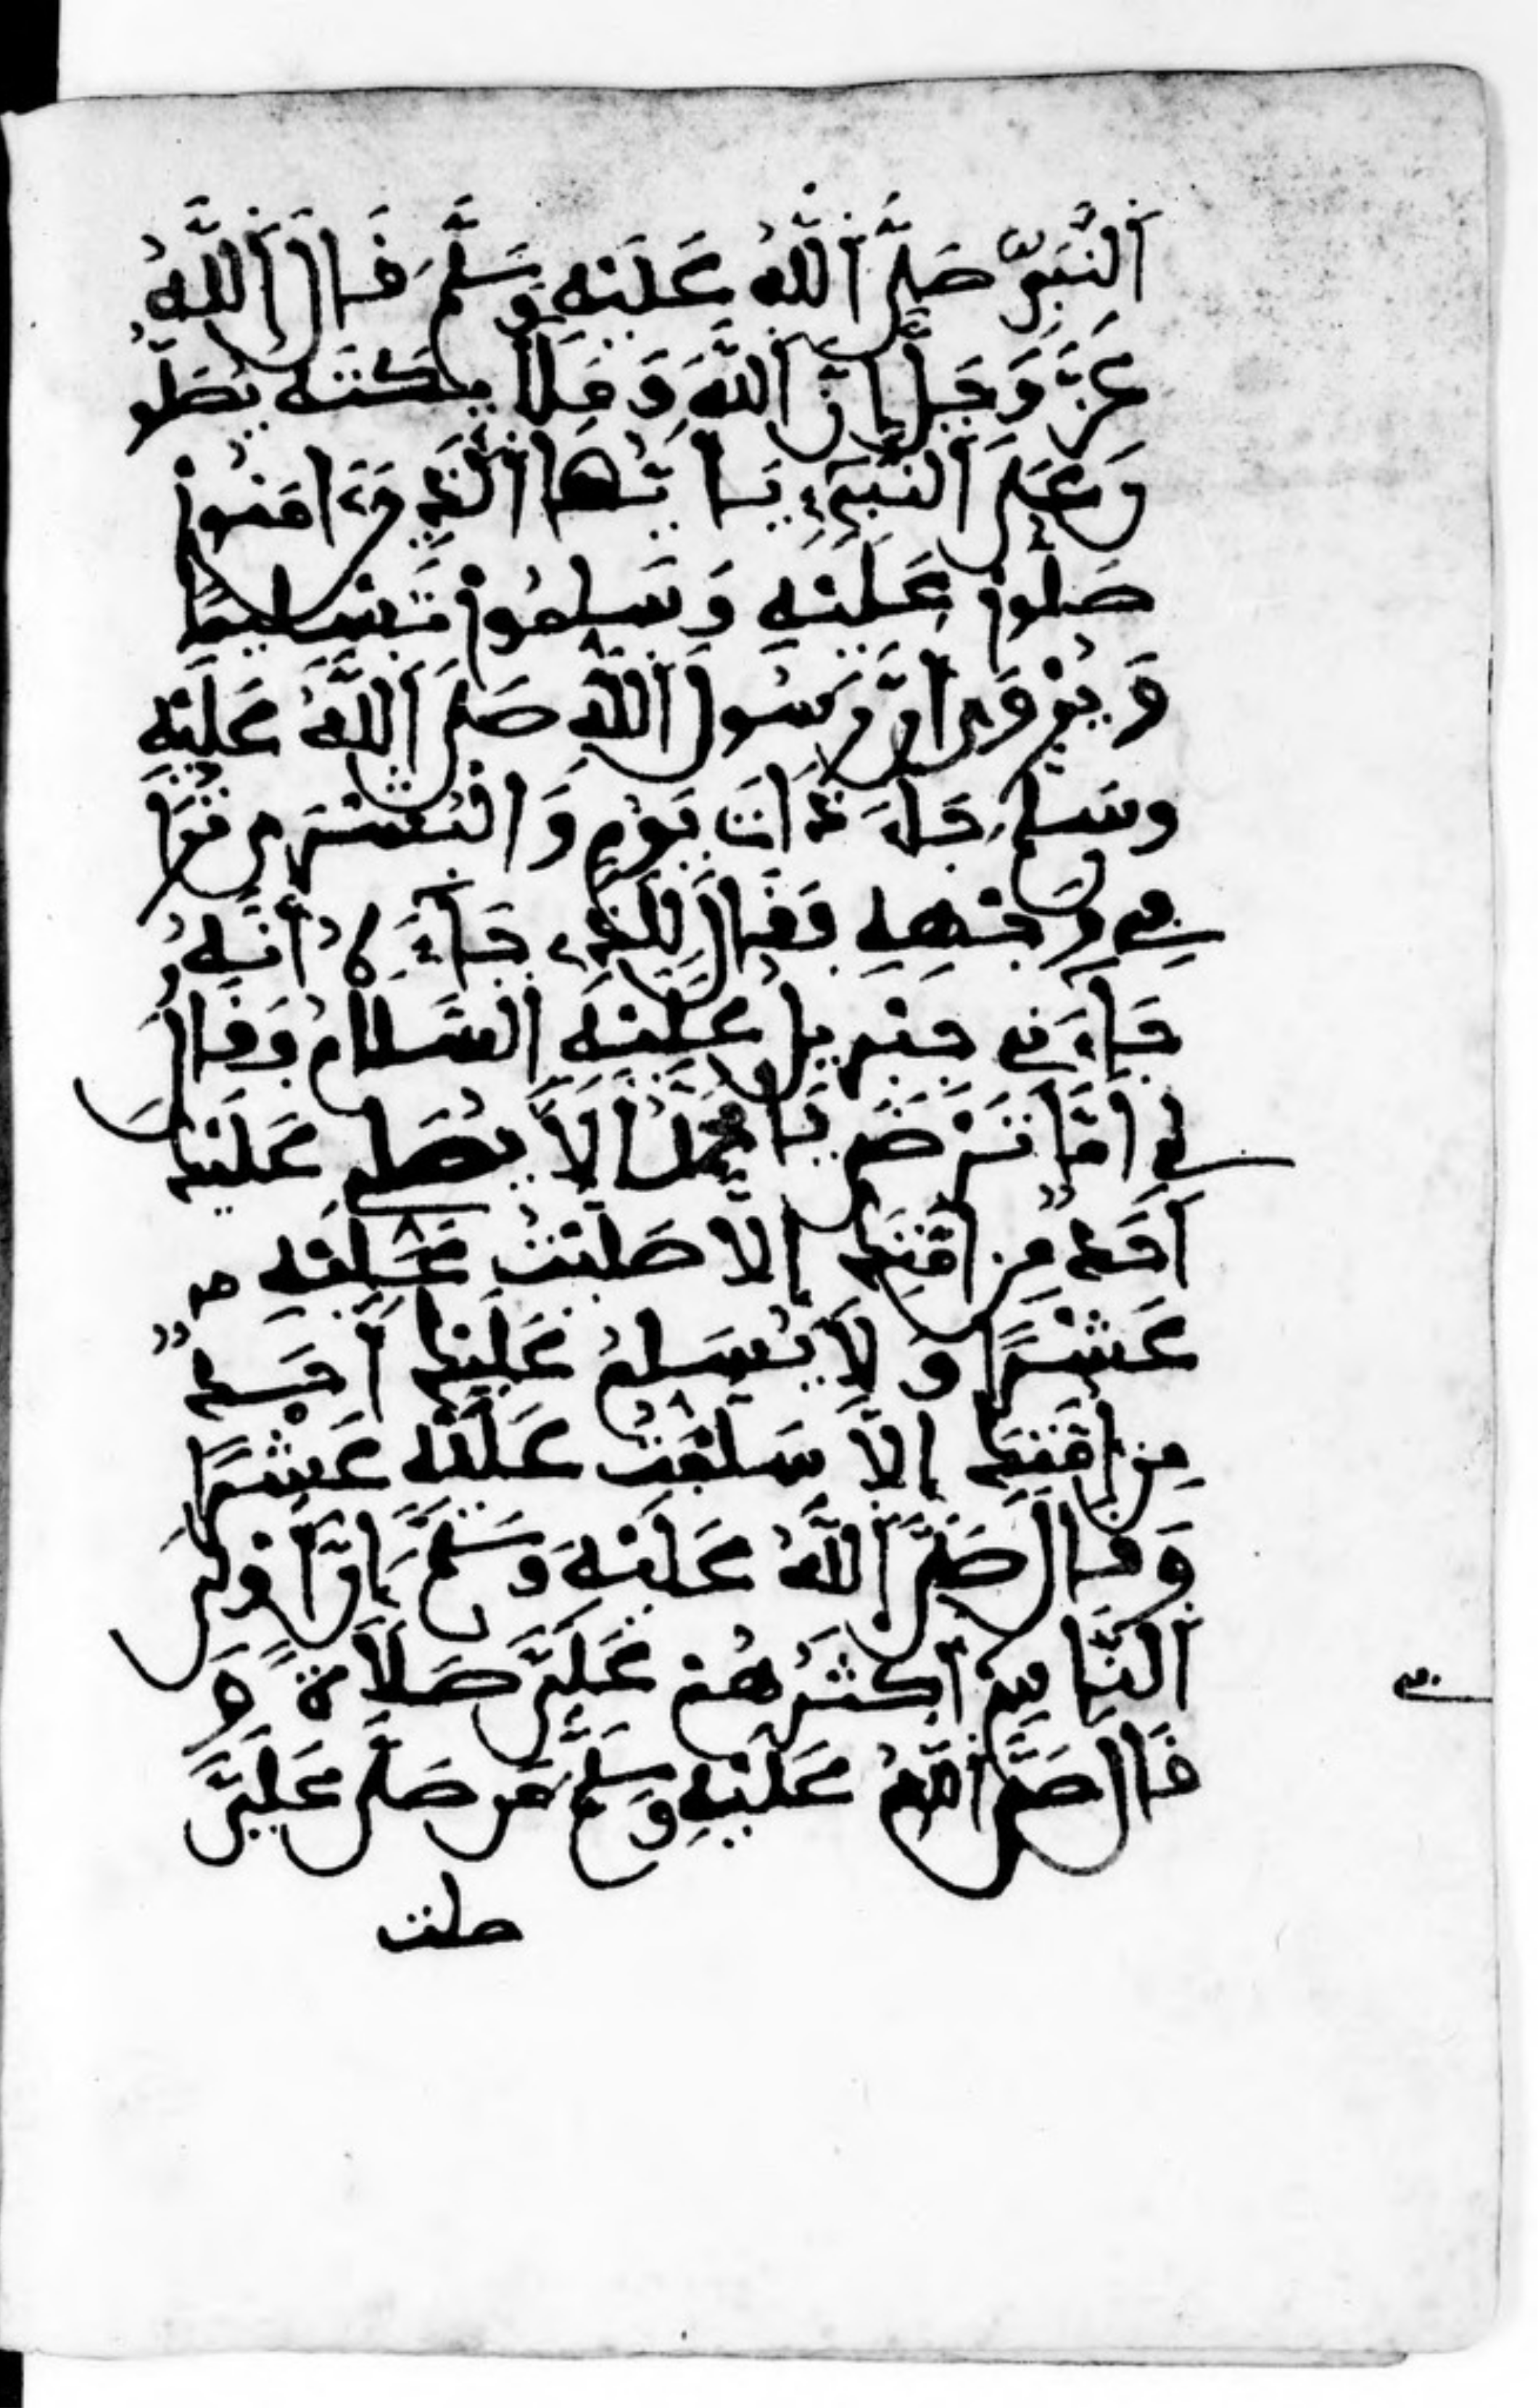 اَلنَّبِيِّ صَلَّى اَللَّهُ عَلَيْهِ وَسَلَّمَ قَالَ اَللَّهُ
عَزَّ وَجَلَّ إِنَّ اَللَّهَ وَمَلَائِكَتَهُ يُصَلُّو
نَ عَلَى اَلنَّبِيِّ يَا أَيُّهَا اَلَّذِينَ ءَامَنُواْ
صَلُّواْ عَلَيْهِ وَسَلِّمُواْ تَسْلِيمًا
وَيُرْوَى أَنَّ رَسُولَ اَللَّهِ صَلَّى اَللَّهُ عَلَيْهِ
وَسَلَّمَ جَاءَ ذَاتَ يَوْمٍ وَالْبُشْرَى تُرَى
فِي وَجْهِهِ فَقَالَ اَلَّذِي جَاءَ كَ أَنَّهُ
جَاءَنِي جِبْرِيلُ عَلَيْهِ اَلسَّلَامُ وَقَالَ
لِي أَمَا تَرْضَى يَا مُحَمَّدُ أَلَّا يُصَلِّي عَلَيْكَ
أَحَدٌ مِنْ أُمَّتِكَ إِلَّا صَلَّيْتُ عَلَيْهِ
عَشْرًا وَلَا يُسَلِّمُ عَلَيْكَ أَحَدٌ
مِنْ أُمَّتِكَ إِلَّا سَلَّمْتُ عَلَيْهِ عَشْرًا
وَقَالَ صَلَّى اَللَّهُ عَلَيْهِ وَسَلَّمَ إِنَّ أَوْلَى
اَلنَّاسِ بِي أَكْثَرُهُمْ عَلَيَّ صَلَاةً وَ
قَالَ صَلَّى اَللَّهُ عَلَيْهِ وَسَلَّمَ مَن صَلَّى عَلَيَّ
صلت